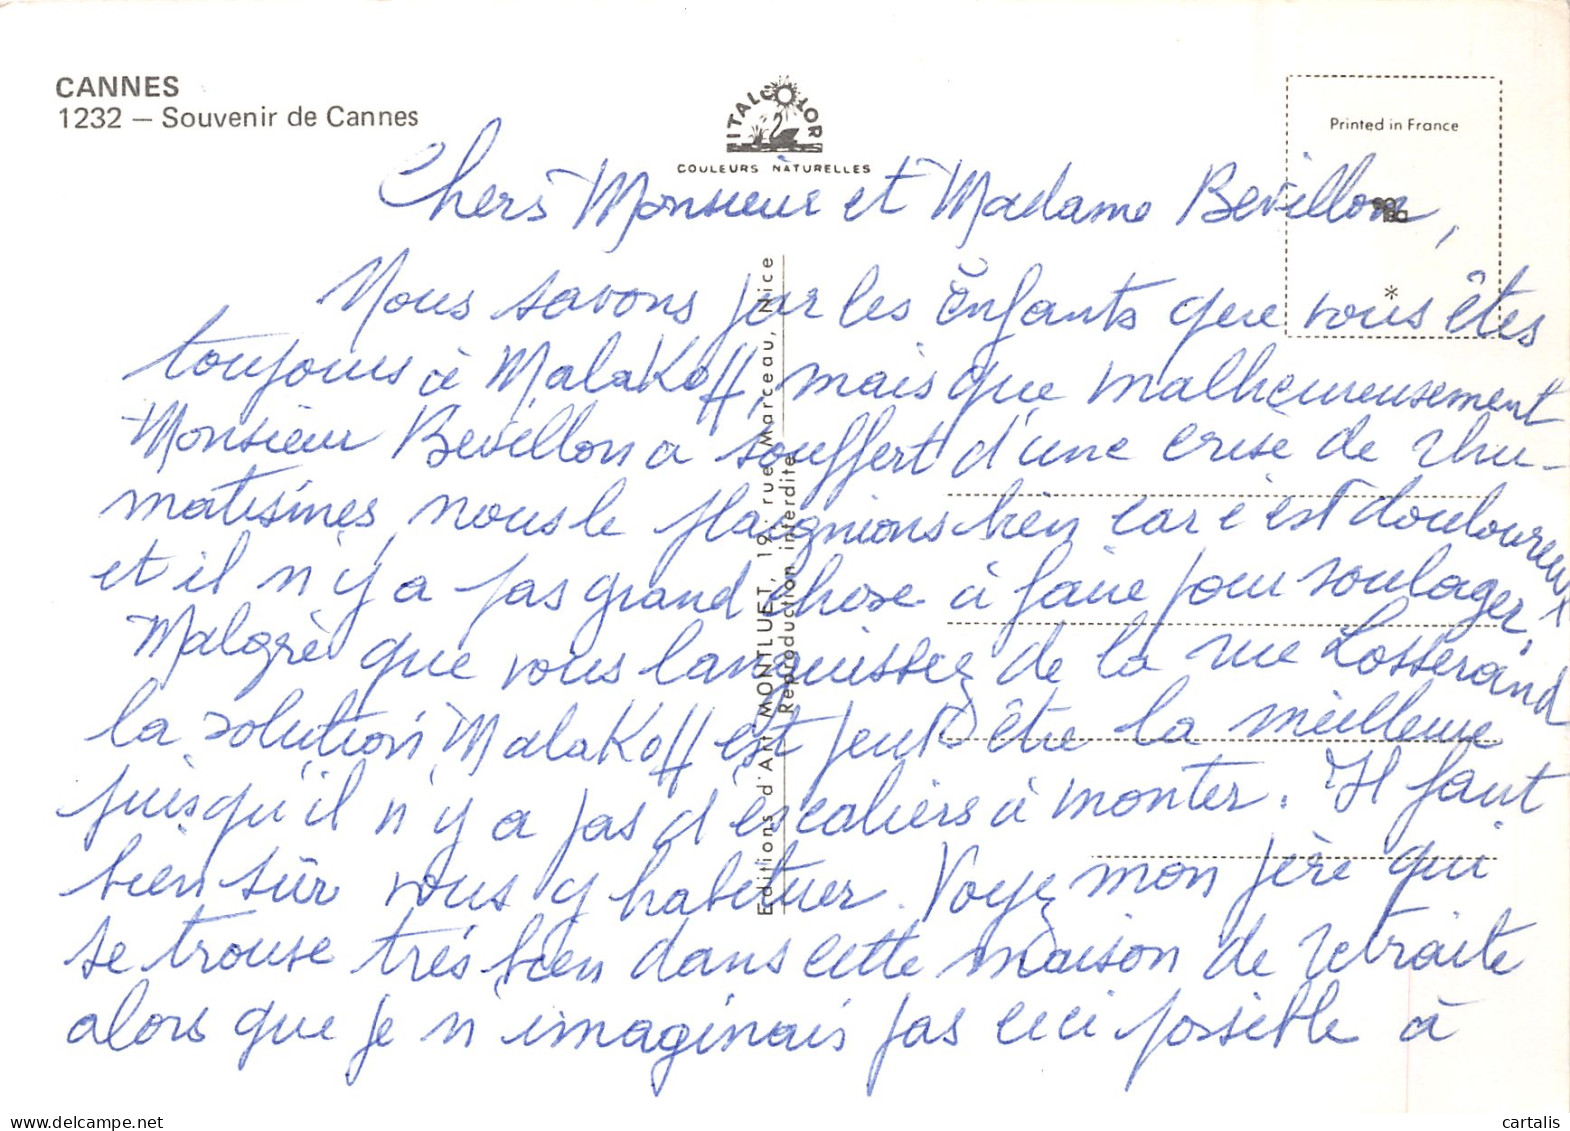 CANNES
1232 — Souvenir de Cannes
ITALCOLOR
COULEURS NATURELLES
Printed in France
*
Editions d'Art MONTLUET, 19, rue Marceau, Nice
Reproduction interdite
Chers Monsieur et Madame Bevillon,
Nous savons par les Enfants que vous êtes
toujours à Malakoff, mais que malheureusement
Monsieur Bevillon a souffert d'une crise de rhu-
matismes, nous le plaignions bien car c'est douloureux
et il n'y a pas grand chose à faire pour soulager.
Malgré que vous languissez de la rue Losserand
la solution Malakoff est peut être la meilleure
puisqu'il n'y a pas d'escaliers à monter. Il faut
bien sûr vous y habituer. Voyez mon père qui
se trouve très bien dans cette maison de retraite
alors que je n'imaginais pas ceci possible à
delcampe.net
cartalis